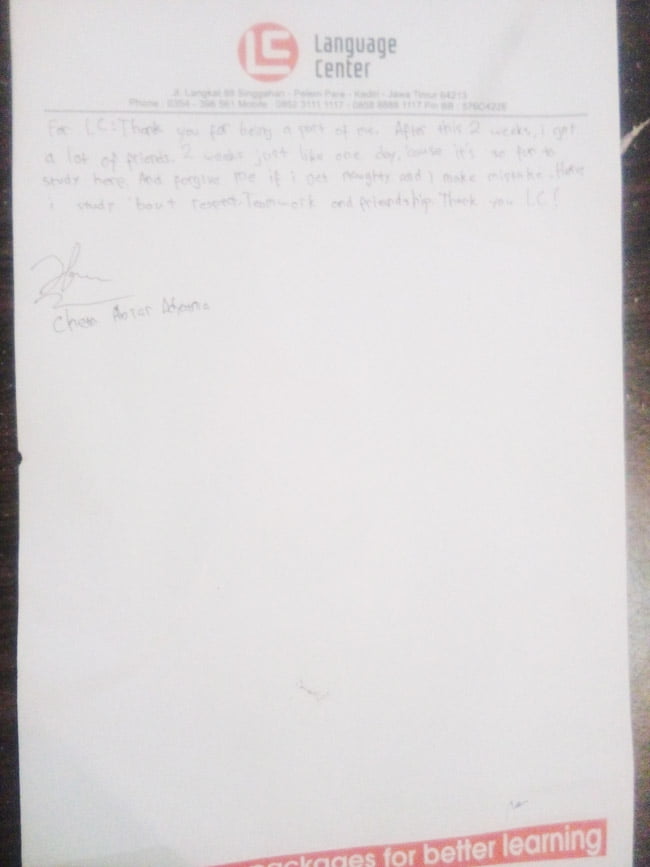 LC Language
Center
Jl. Langkat 88 Singgahan - Pelem Pare - Kediri - Jawa Timur 64213
Phone : 0354 - 396 561 Mobile : 0852 3111 1117 - 0858 8888 1117 Pin BB :
For LC: Thank you for being a part of me. After this 2 weeks, i get
a lot of friends. 2 weeks just like one day, 'cause it's so fun to
study here. And forgive me if i get naughty and i make mistake. Here
i study 'bout respect, Teamwork and friendship. Thank you LC!
packages for better learning